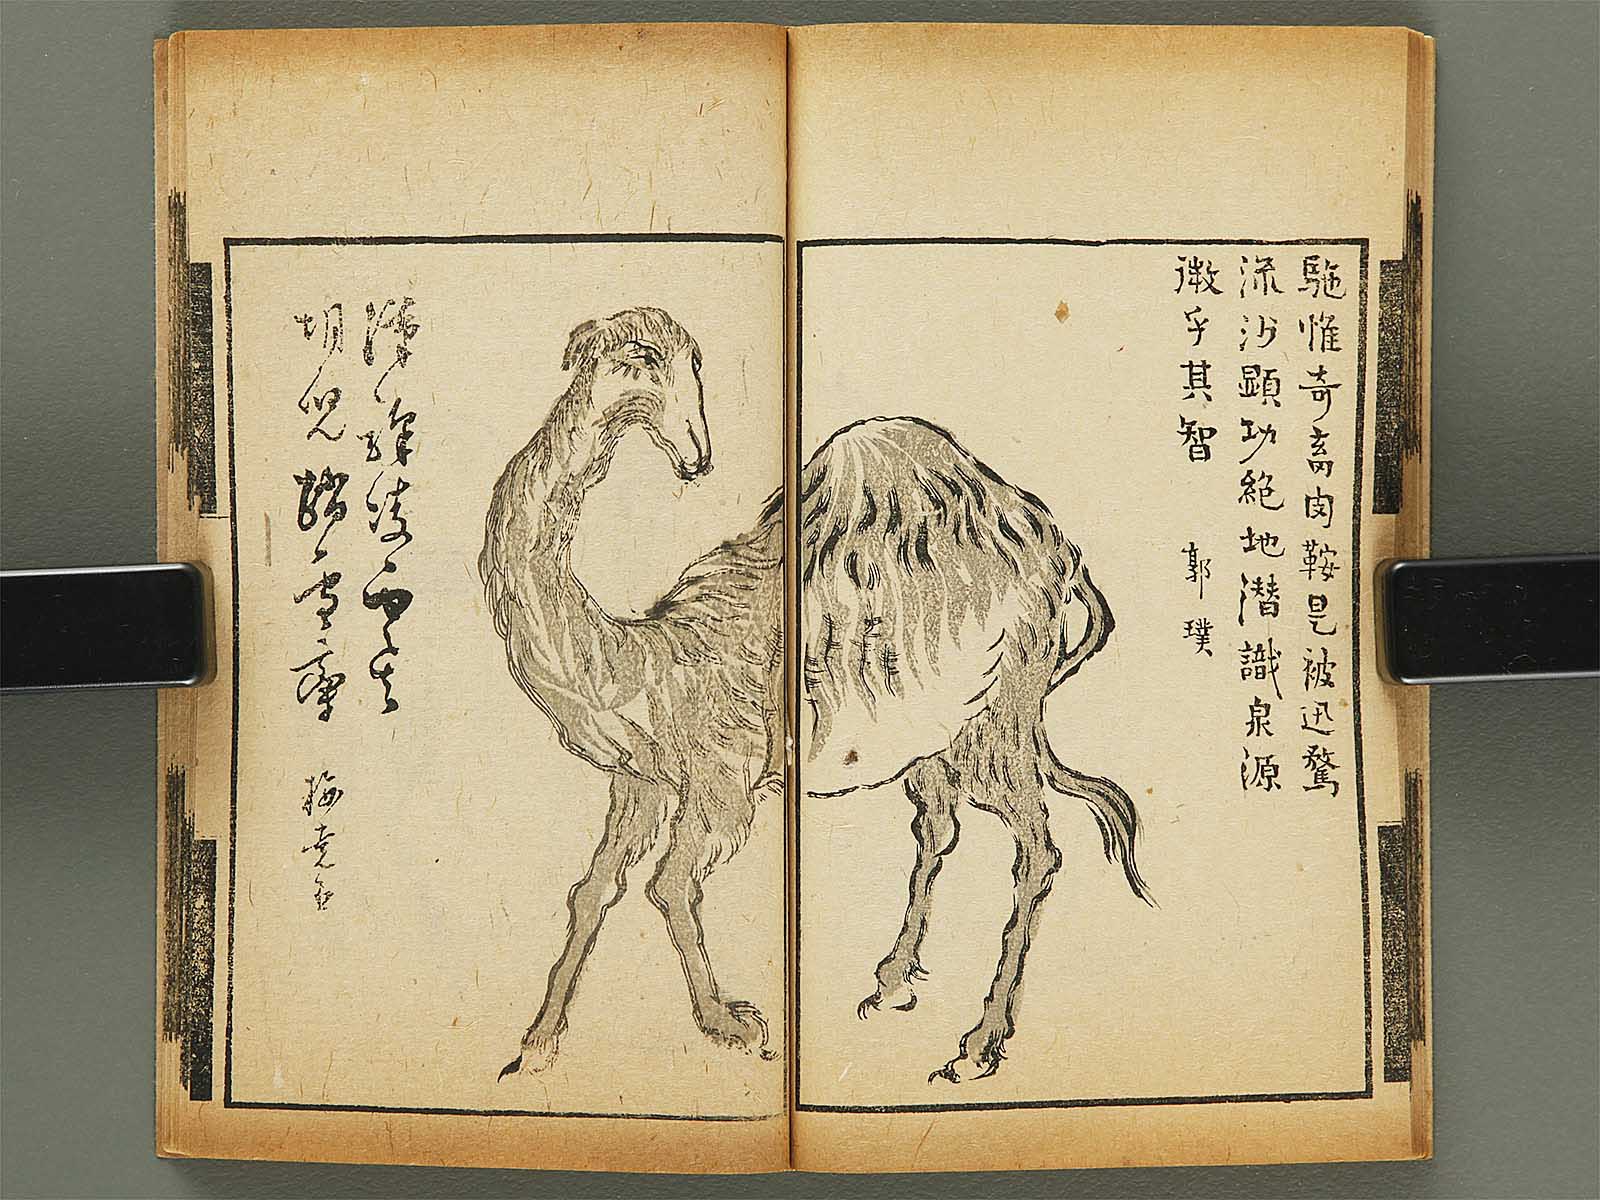 駞惟奇畜肉鞍是被迅騖
流沙顕功絶地潜識泉源
微乎其智 郭璞
胡児
梅堯臣